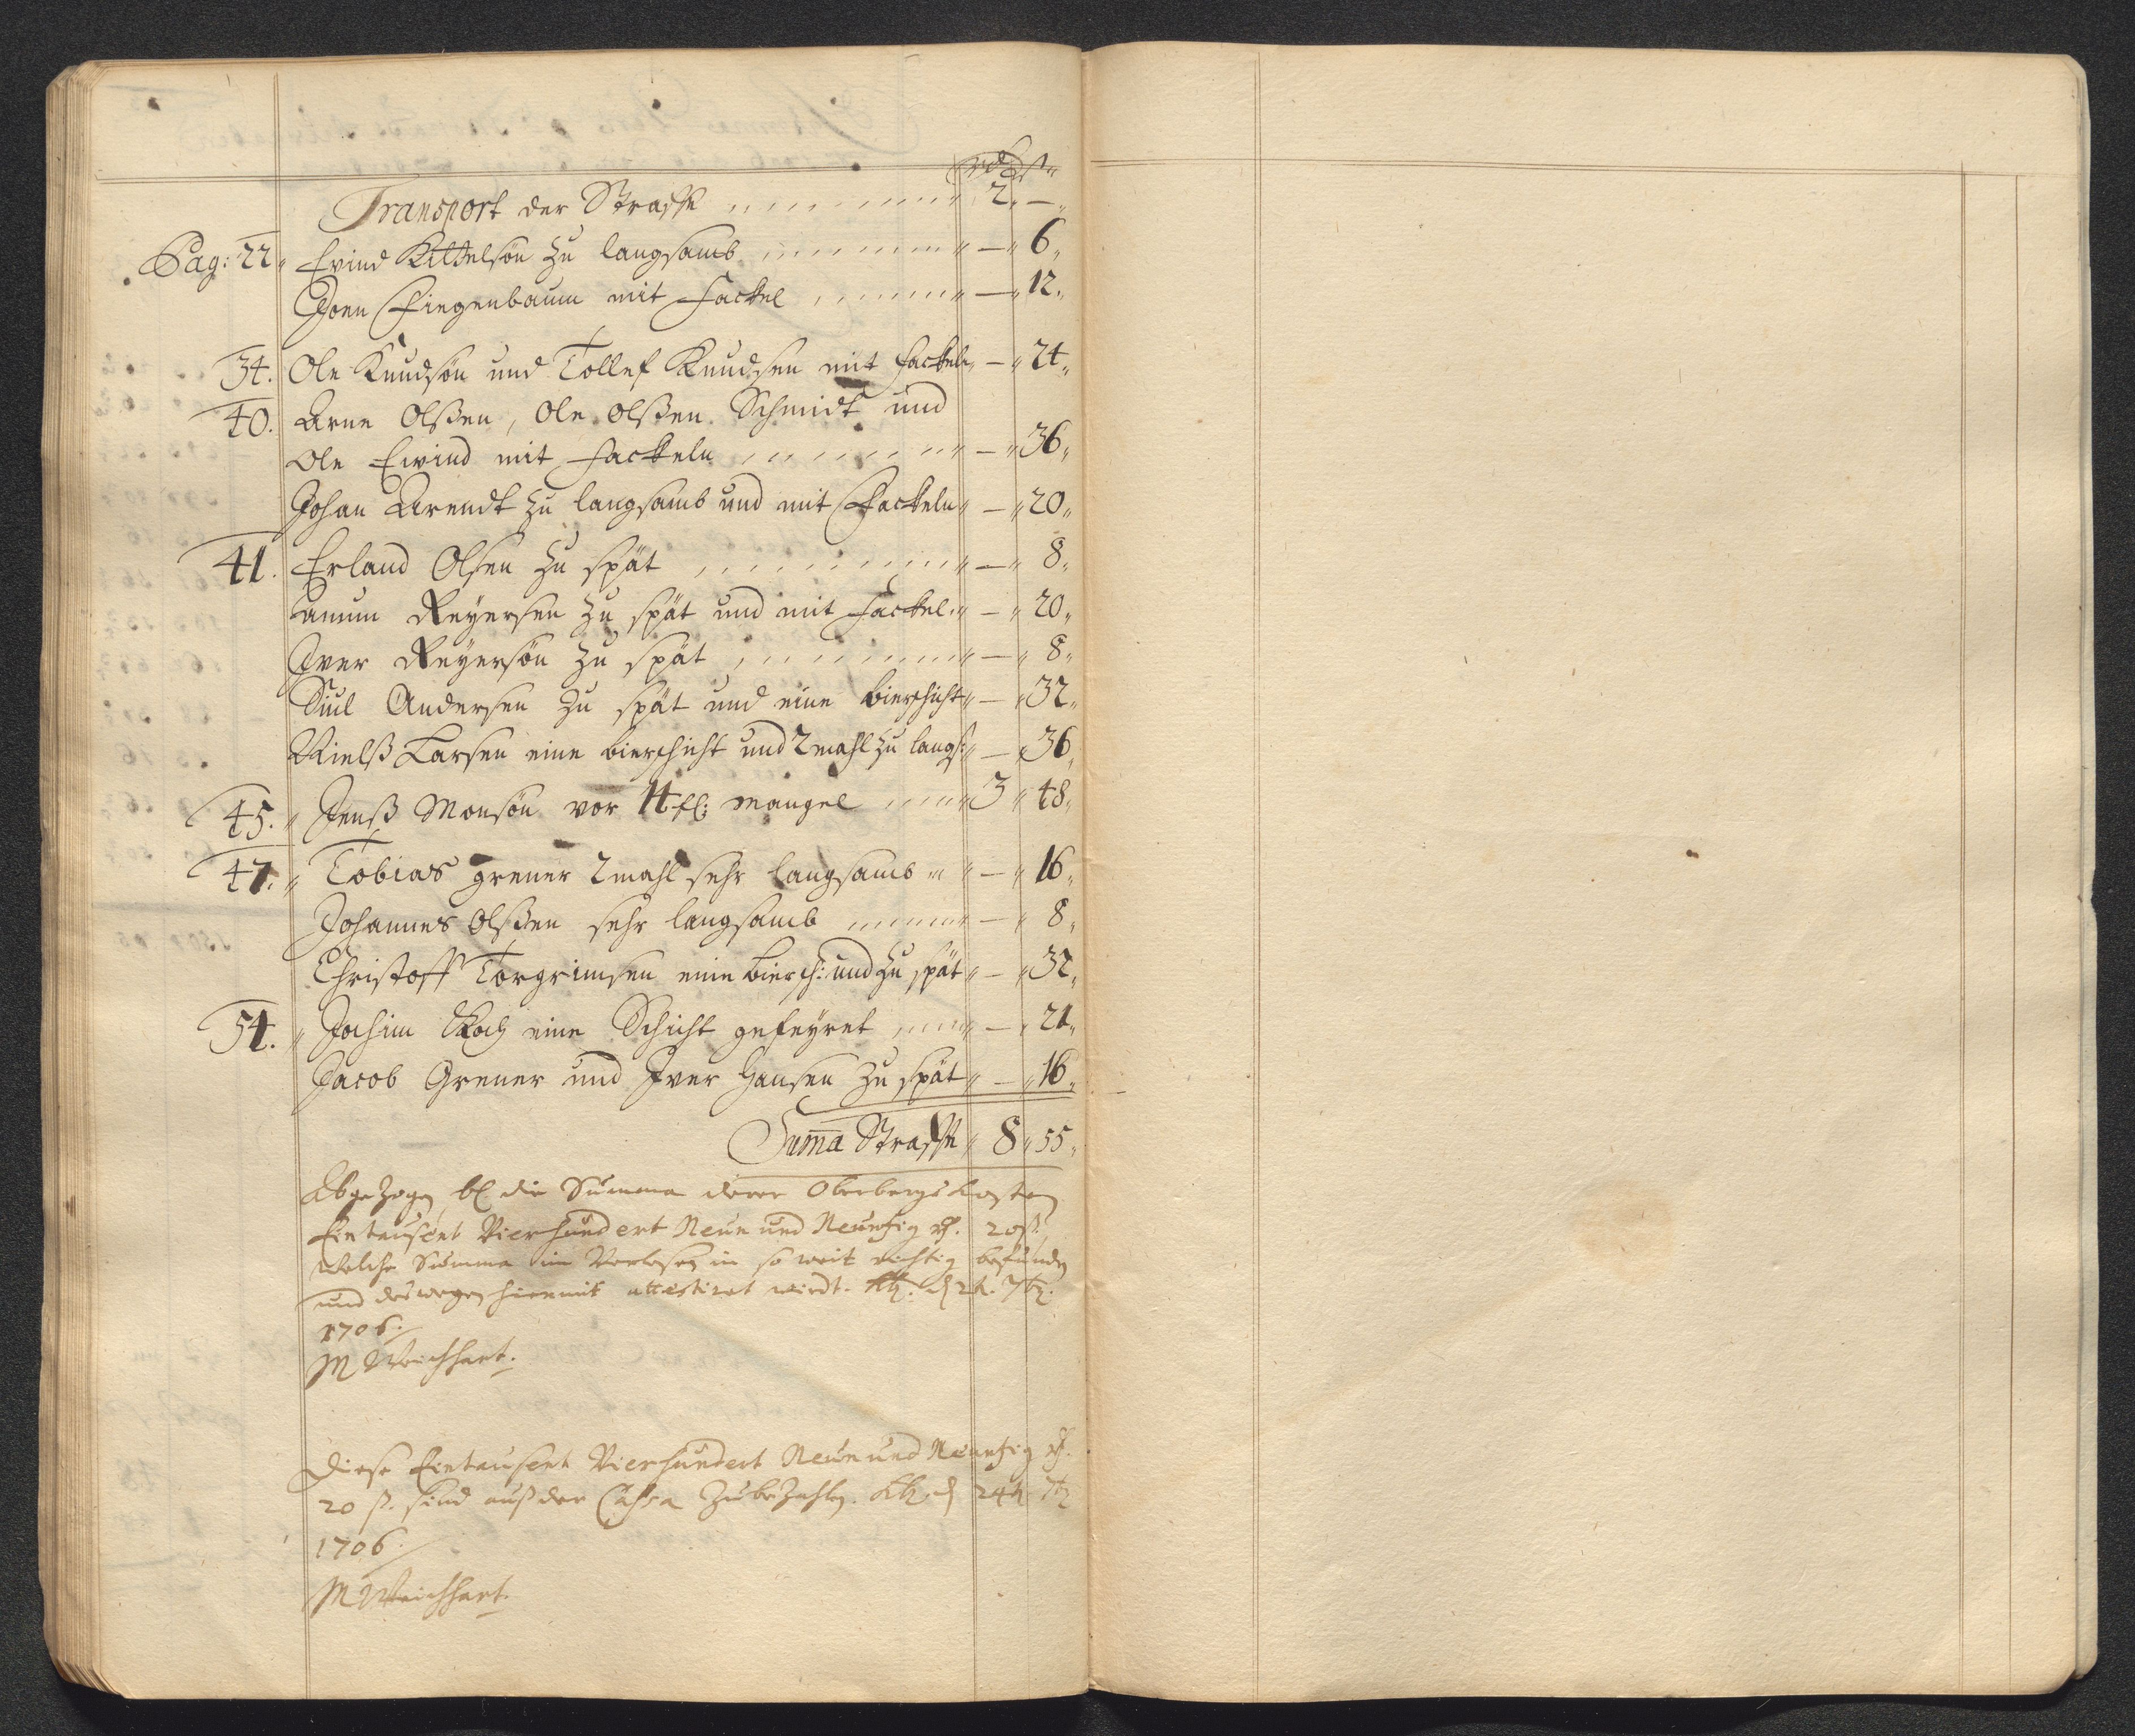 rd ß
Transport der Straffe 2. —
Pag: 22. Evind Kittelsön zu langsamb — 6.
Joen Fiegenbaum mit Fackel — 12.
34. Ole Knudsön und Tollef Knudsen mit Fackeln — 24.
40. Arne Olßen, Ole Olßen Schmidt und
Ole Eivind mit Fackeln — 36.
Johan Arendt zu langsamb und mit Fackeln — 20.
41. Erland Olsen zu spät — 8.
Amum Reyersen zu spät und mit Fackel — 20.
Iver Reyersön zu spät — 8.
Siul Andersen zu spät und eine bierschicht — 32.
Nielß Larsen eine bierschicht und 2 mahl zu langs: — 36.
45. Jenß Monsön vor mangel 3 48.
47. Tobias grener 2 mahl sehr langsamb — 16.
Johannes Olßen sehr langsamb — 8.
Christoff Torgrimsen eine biersch: und zu spät — 32.
54. Jochim Koch eine Schicht gefeyret — 21.
Jacob Grener und Iver Hansen zu spät — 16.
Suma Straffe 8 55.
Abgezogen die Summa derer Oberbergs Kosten
Eintausent Vierhundert Neun und Neuntzig 20 ß.
Welche Summa im Verlesen in so weit richtig befunden
und deswegen hiermit attestiret wirdt.
1706.
M Weichhart.
Diese Eintausent Vierhundert Neun und Neuntzig
20 ß. sind auß der Cassa Zu bezahlen. 24
1706.
M Weichhart.